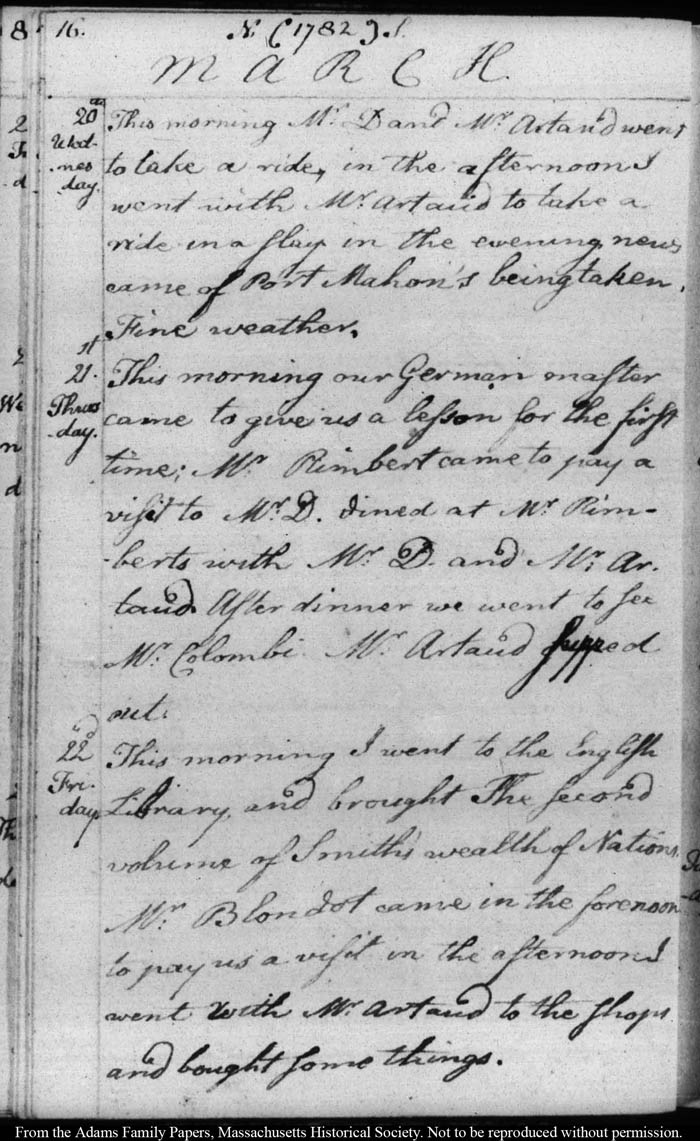 8
16.
N. (1782) S.
MARCH
20th
Wed-
-nes
day.
This morning Mr. D and Mr. Artaud went
to take a ride, in the afternoon I
went with Mr. Artaud to take a
ride in a slay in the evening news
came of Port Mahon's being taken.
Fine weather.
21st.
Thurs
-day.
This morning our German master
came to give us a lesson for the first
time; Mr. Rimbert came to pay a
visit to Mr. D. dined at Mr. Rim-
-berts with Mr. D. and Mr. Ar-
taud. After dinner we went to see
Mr. Colombi. Mr. Artaud supped
out.
22d
Fri-
day.
This morning I went to the English
Library, and brought The second
volume of Smith's wealth of Nations.
Mr. Blondot came in the forenoon
to pay us a visit in the afternoon I
went with Mr. Artaud to the shops
and bought some things.
From the Adams Family Papers, Massachusetts Historical Society. Not to be reproduced without permission.